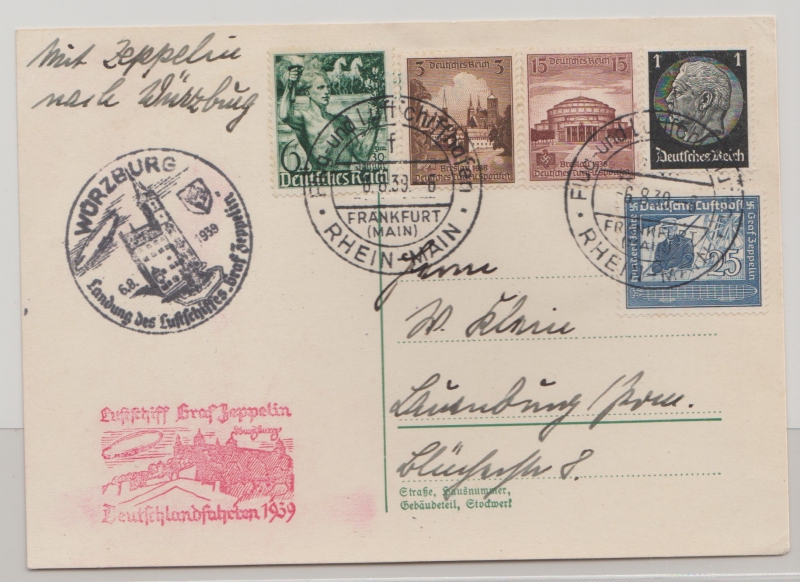 Mit Zeppelin
nach Würzburg
WÜRZBURG
6.8. 1939
Landung des Luftschiffes Graf Zeppelin
Luftschiff Graf Zeppelin
Würzburg
Deutschlandfahrten 1939
6
Deutsches Reich
3 Deutsches Reich
Breslau 1938
15 Deutsches Reich 15
Breslau 1938
1 1
Deutsches Reich
Deutsche Luftpost
Graf Zeppelin
25
Flug- und Luftschiffhafen
f
-6.8.39.-8
FRANKFURT
(MAIN)
RHEIN-MAIN
-6.8.39
FRANKFURT
(MAIN)
RHEIN-MAIN
Herrn
W. Klein
Lauenburg / Pom.
Blücherstr 8.
Straße, Hausnummer,
Gebäudeteil, Stockwerk